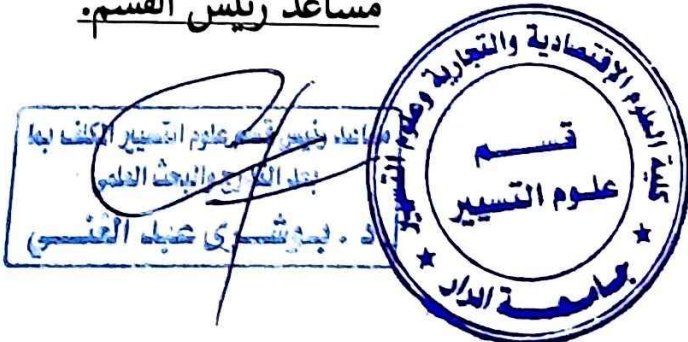 مساعد رئيس القسم.
مساعد رئيس قسم علوم التسيير المكلف بما
بعد التدرج والبحث العلمي
د . بوشرى عبد الغنسي
كلية العلوم الإقتصادية والتجارية وعلوم التسيير
قسم
علوم التسيير
جامعة ادرار